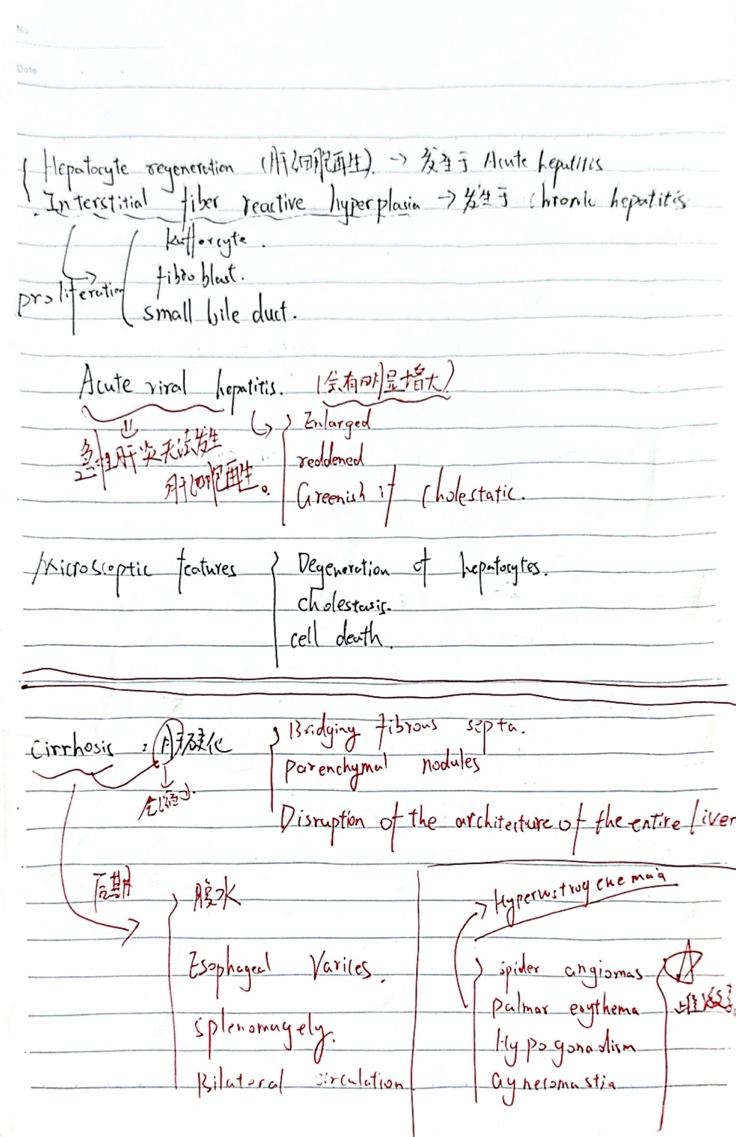 No.
Date
Hepatocyte regeneration (肝细胞再生). → 发生于 Acute hepatitis
Interstitial fiber reactive hyperplasia → 发生于 chronic hepatitis
proliferation
kuffercyte.
fibroblast.
small bile duct.
Acute viral hepatitis. (会有明显增大)
急性肝炎无法发生
肝细胞再生。
Enlarged
reddened
Greenish if cholestatic.
Microscoptic features
Degeneration of hepatocytes.
cholestasis.
cell death.
Cirrhosis : 肝硬化
Bridging fibrous septa.
parenchymal nodules
Disruption of the architecture of the entire liver
后期
腹水
Esophageal Varices.
Splenomagely.
Bilatoral circulation
spider angiomas
palmar erythema
Hypogonadism
Gynecomastia